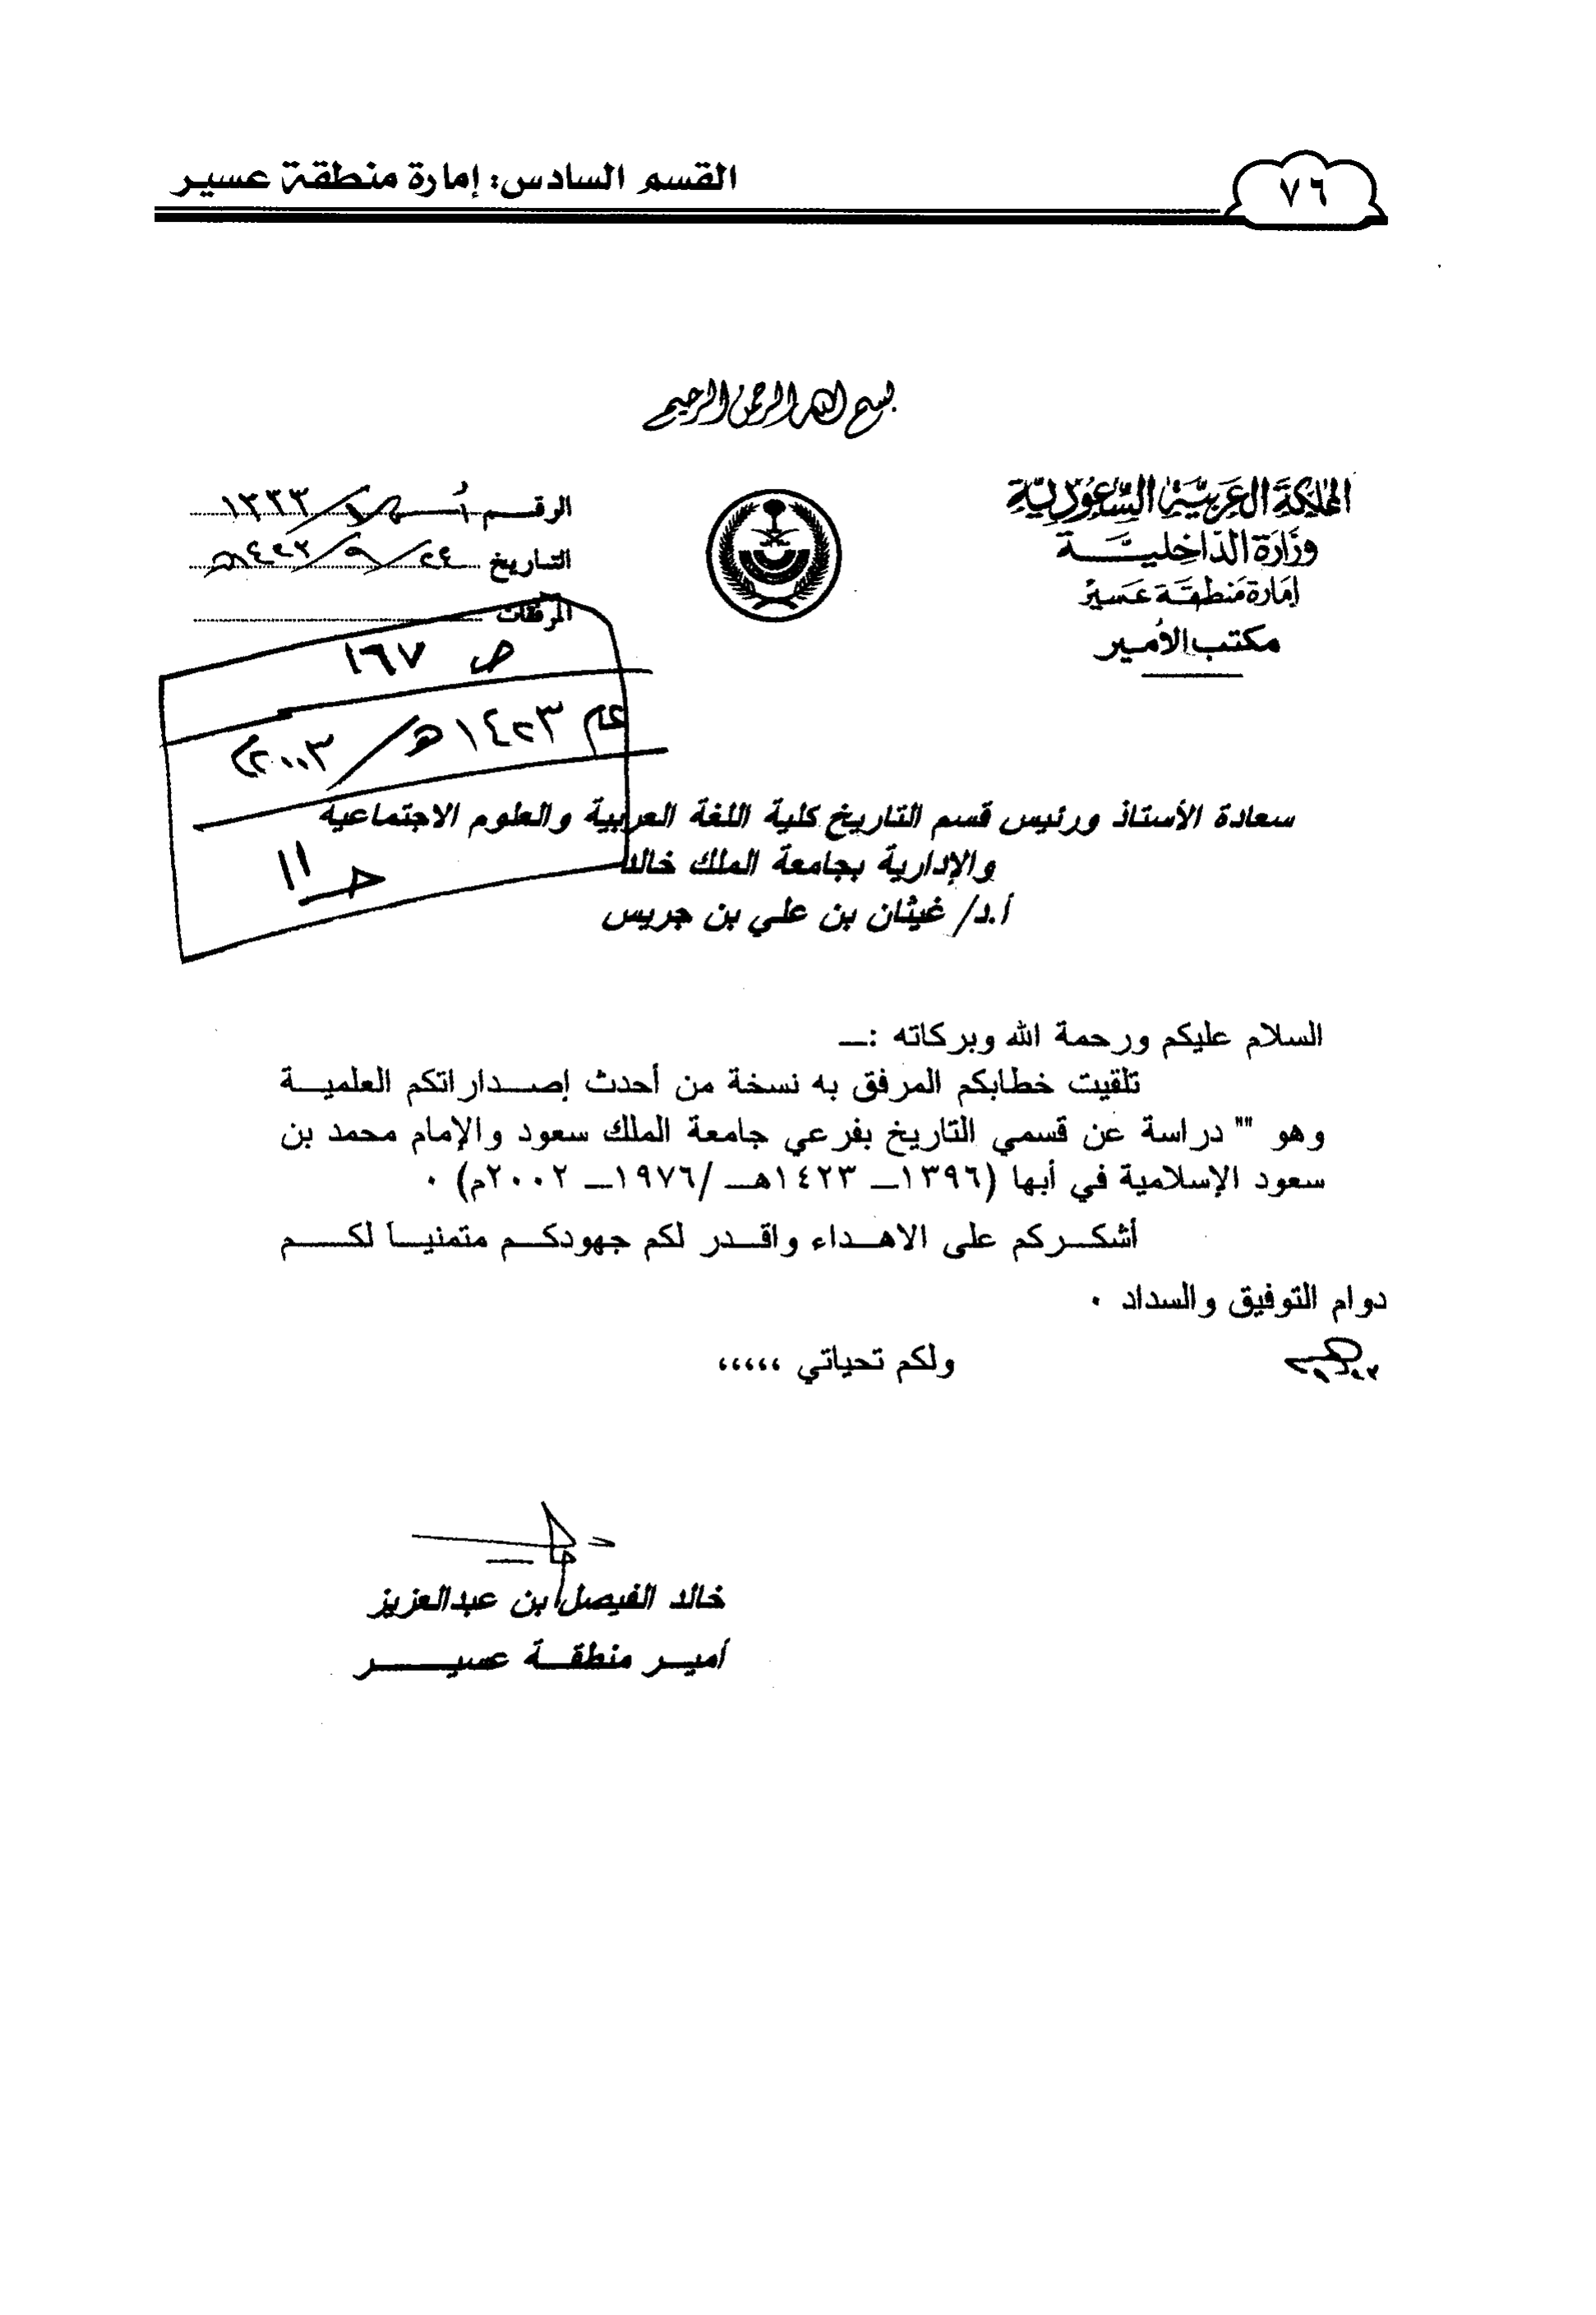 ٧٦
القسم السادس: إمارة منطقة عسير
بسم الله الرحمن الرحيم
المملكة العربية السعودية
وزارة الداخلية
إمارة منطقة عسير
مكتب الأمير
الرقم ١٣٣٣
التاريخ ٢٤/٩/١٤٢٣هـ
المرفقات
ص ١٦٧
عام ١٤٢٣هـ/٢٠٠٣م
جـ ١١
سعادة الأستاذ ورئيس قسم التاريخ كلية اللغة العربية والعلوم الاجتماعية
والإدارية بجامعة الملك خالد
أ.د/ غيثان بن علي بن جريس
السلام عليكم ورحمة الله وبركاته :ــ
تلقيت خطابكم المرفق به نسخة من أحدث إصداراتكم العلمية
وهو "" دراسة عن قسمي التاريخ بفرعي جامعة الملك سعود والإمام محمد بن
سعود الإسلامية في أبها (١٣٩٦ــ ١٤٢٣هــ /١٩٧٦ــ ٢٠٠٢م) ٠
أشكركم على الاهداء واقدر لكم جهودكم متمنيا لكم
دوام التوفيق والسداد ٠
ولكم تحياتي ،،،،،
خالد الفيصل بن عبدالعزيز
أمير منطقة عسير